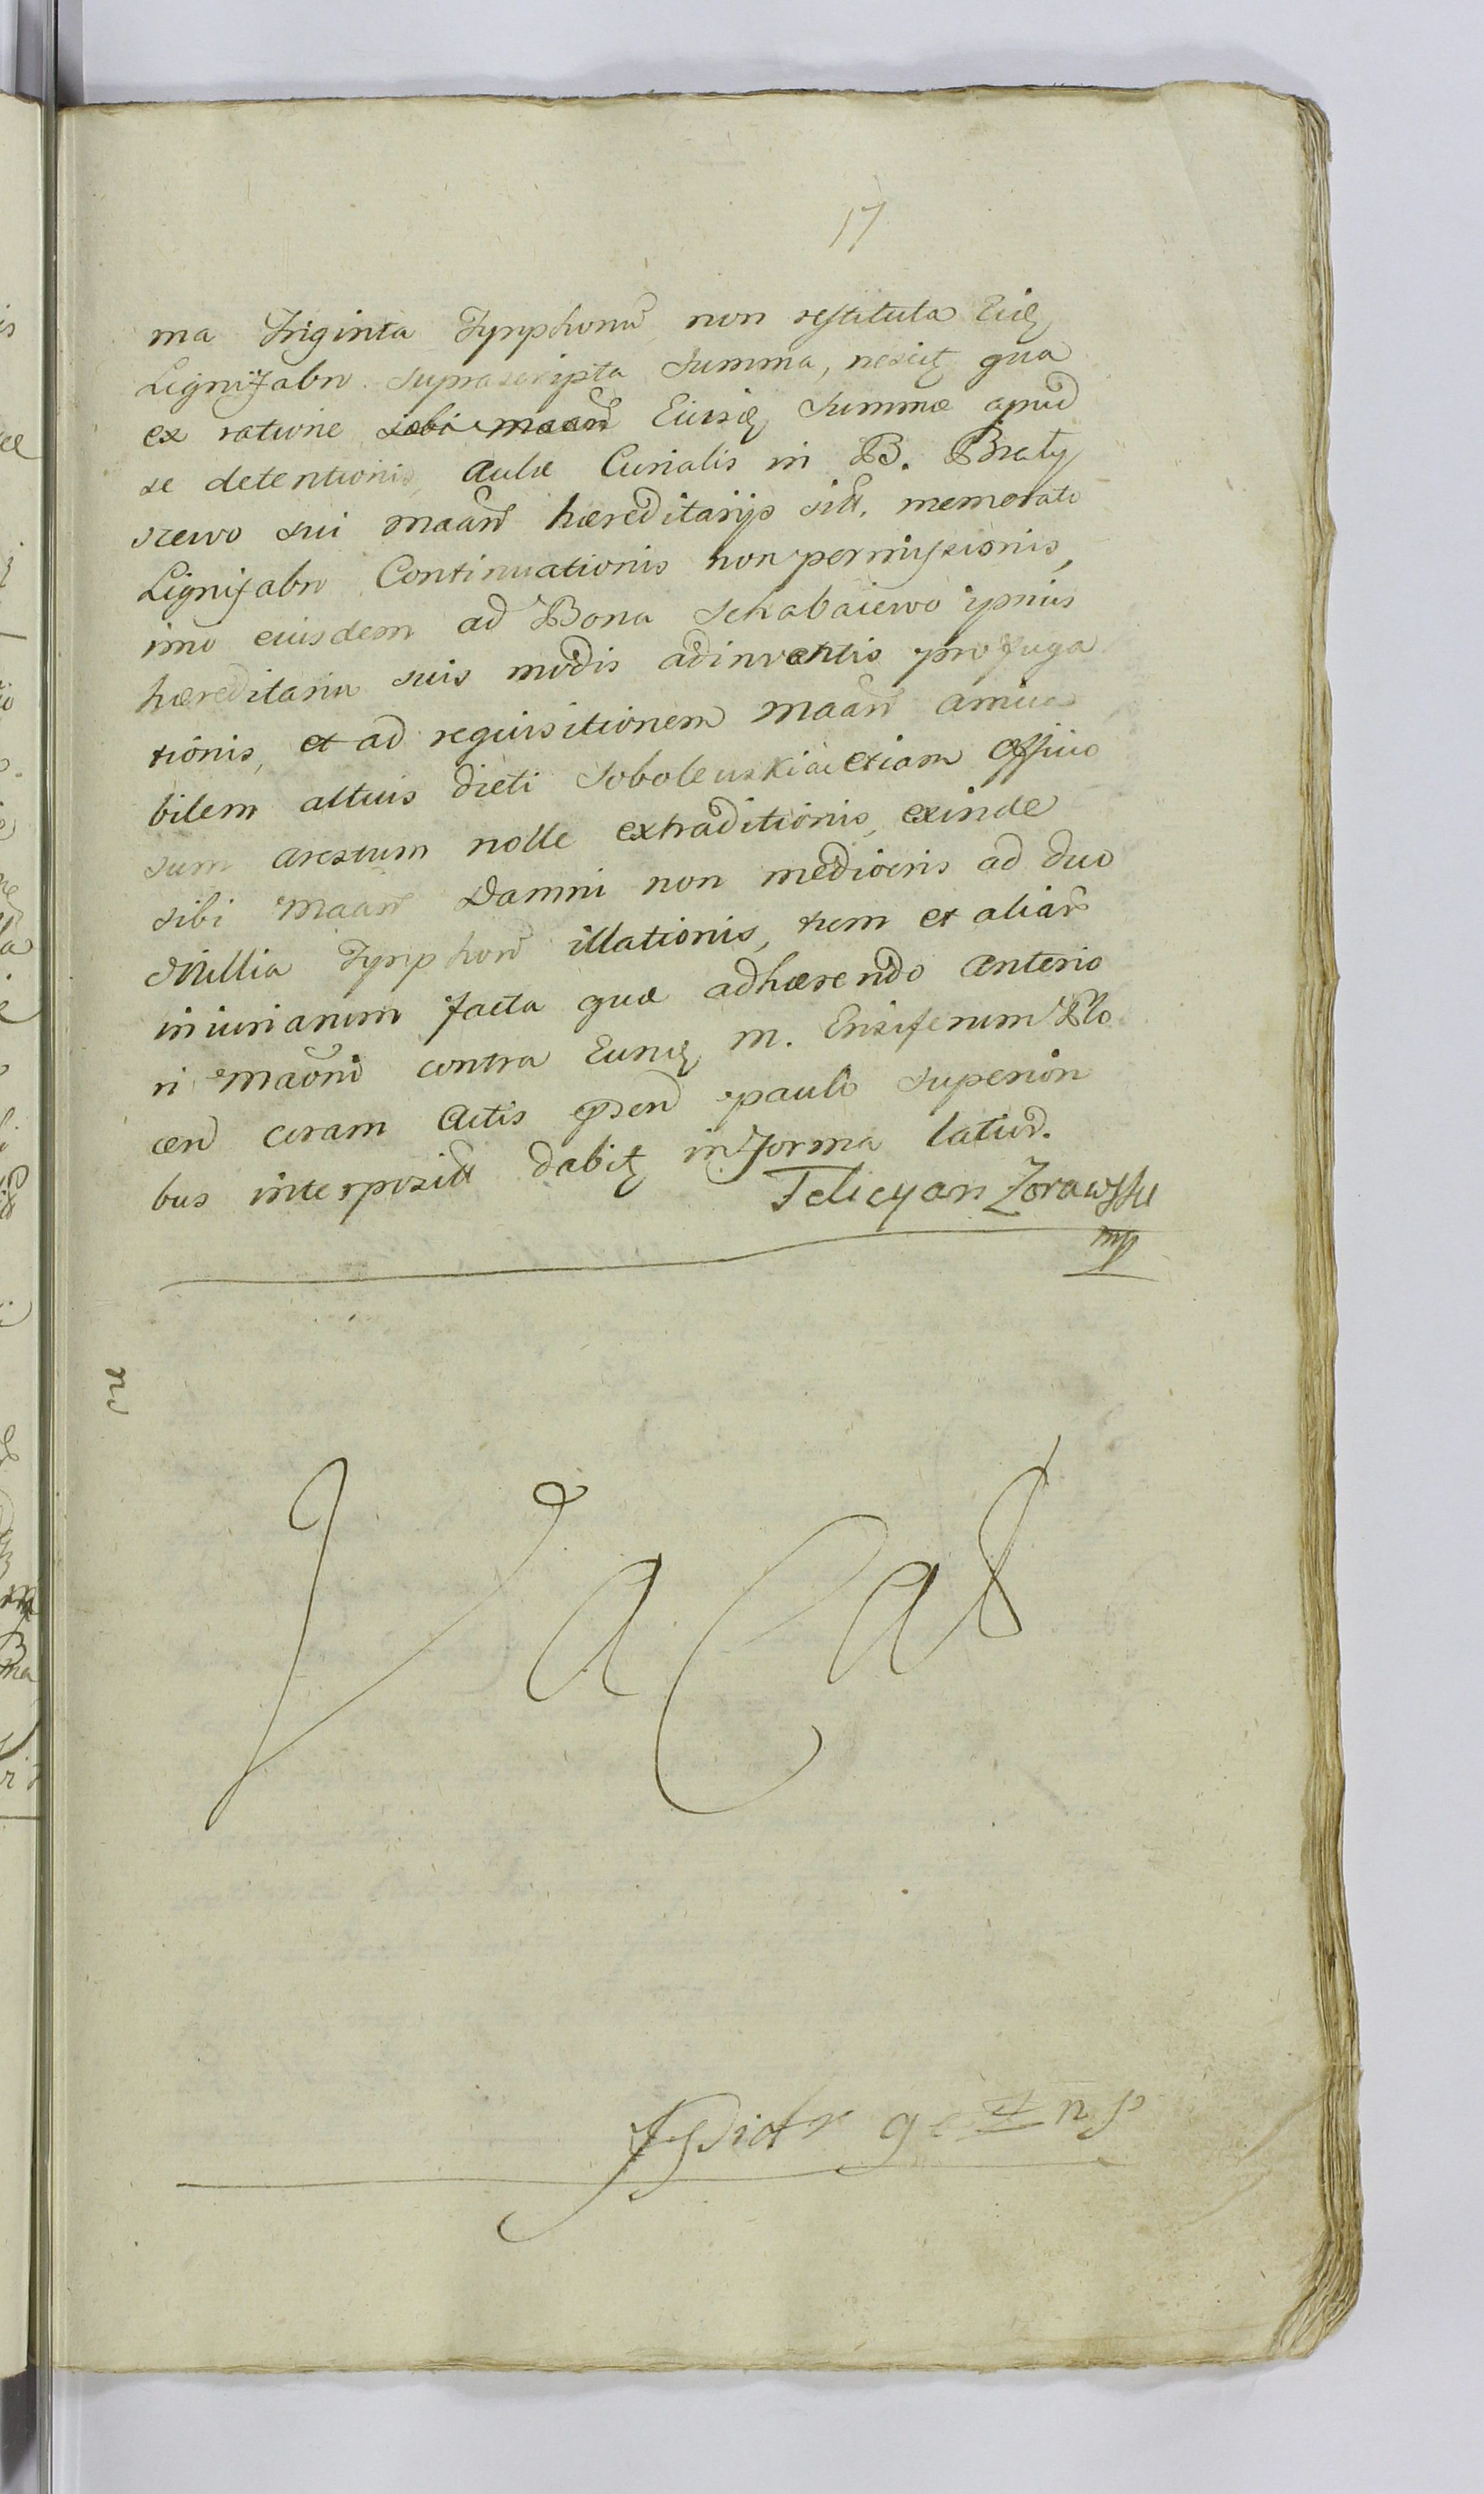 17
ma Triginta Tynphonu non restituta Eidę
Lignifabro supra scripta Summa, nescitę qua
ex ratione sibi maan̄d Eiusdę Summæ apud
se detentionis, Aulæ Curialis in B. Braty
szewo sui maan̄d hæreditarijs sitt. memorato
Lignifabro Continuationis non permissionis,
imo eiusdem ad Bona Schabaiewo ipsius
hæreditaria suis modis adinventis profuga
tionis, et ad requisitionem maan̄d amica
bilem altius dicti Soboleuski ac etiam officio
sum arestum nolle extraditionis, exinde
sibi maan̄d Damni non mediocris ad duo
Millia Tynphon̄ illationis, tum et aliar̄
iniuriarum facta quæ adhærendo anterio
ri maōni contra Eundę M. Ensiferum Plo
cen̄ coram Actis p̄sen̄ paulo superiori
bus interposit̄ dabitę in forma latiori.
Felicyan Zorawski
mp
Vacat